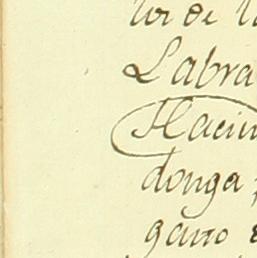 de
Labra
Hacin
donga
gano